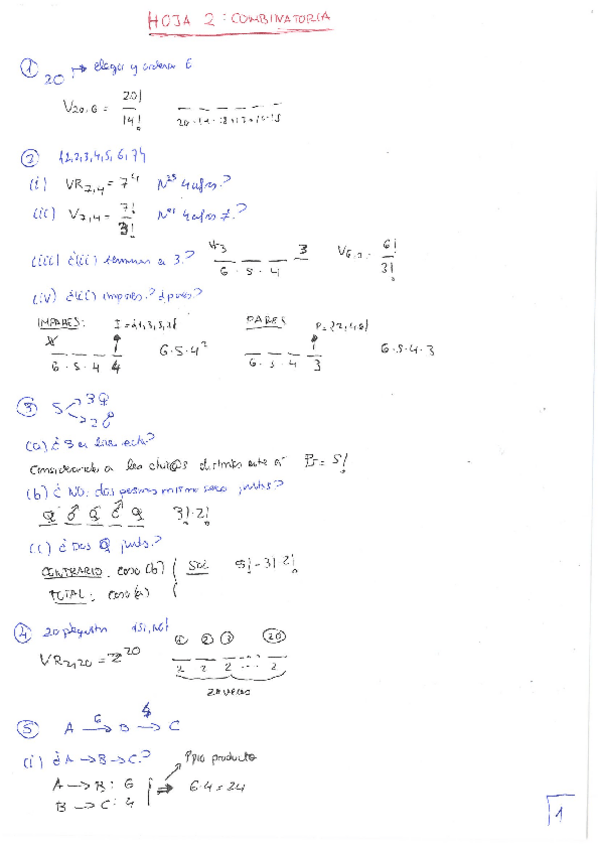 HOJA 2: COMBINATORIA
① 20 → elegir y ordenar 6
V20,6 = 20! / 14!
② {1,2,3,4,5,6,7}
(i) VR7,4 = 7^4 Nos 4 cifras?
(ii) V7,4 = 7! / 3! Nos 4 cifras ≠?
(iii) ¿(ii) terminan en 3? 6·5·4 3 = 6! / 3!
(iv) ¿(ii) impares? ¿pares?
IMPARES: I={1,3,5,7} PARES P={2,4,6}
6·5·4 4 6·5·4² 6·5·4 3 6·5·4·3
③ 5 3♀
2♂
(a) ¿ ?
Considerando a distintos P5 = 5!
(b) ¿NO dos personas mismo sexo juntas?
♀ ♂ ♀ ♂ ♀ 3!·2!
(c) ¿Dos ♀ junts.?
CONTRARIO: caso (b) Sol 5!-3!2!
TOTAL: caso (a)
④ 20 preguntas {SI,NO} ① ② ③ ⑳
VR2,20 = 2^20 2 2 2 ... 2
20 veces
⑤ A 6→ B 4→ C
(i) ¿A→B→C? Ppio producto
A→B: 6 ⇒ 6·4=24
B→C: 4
1